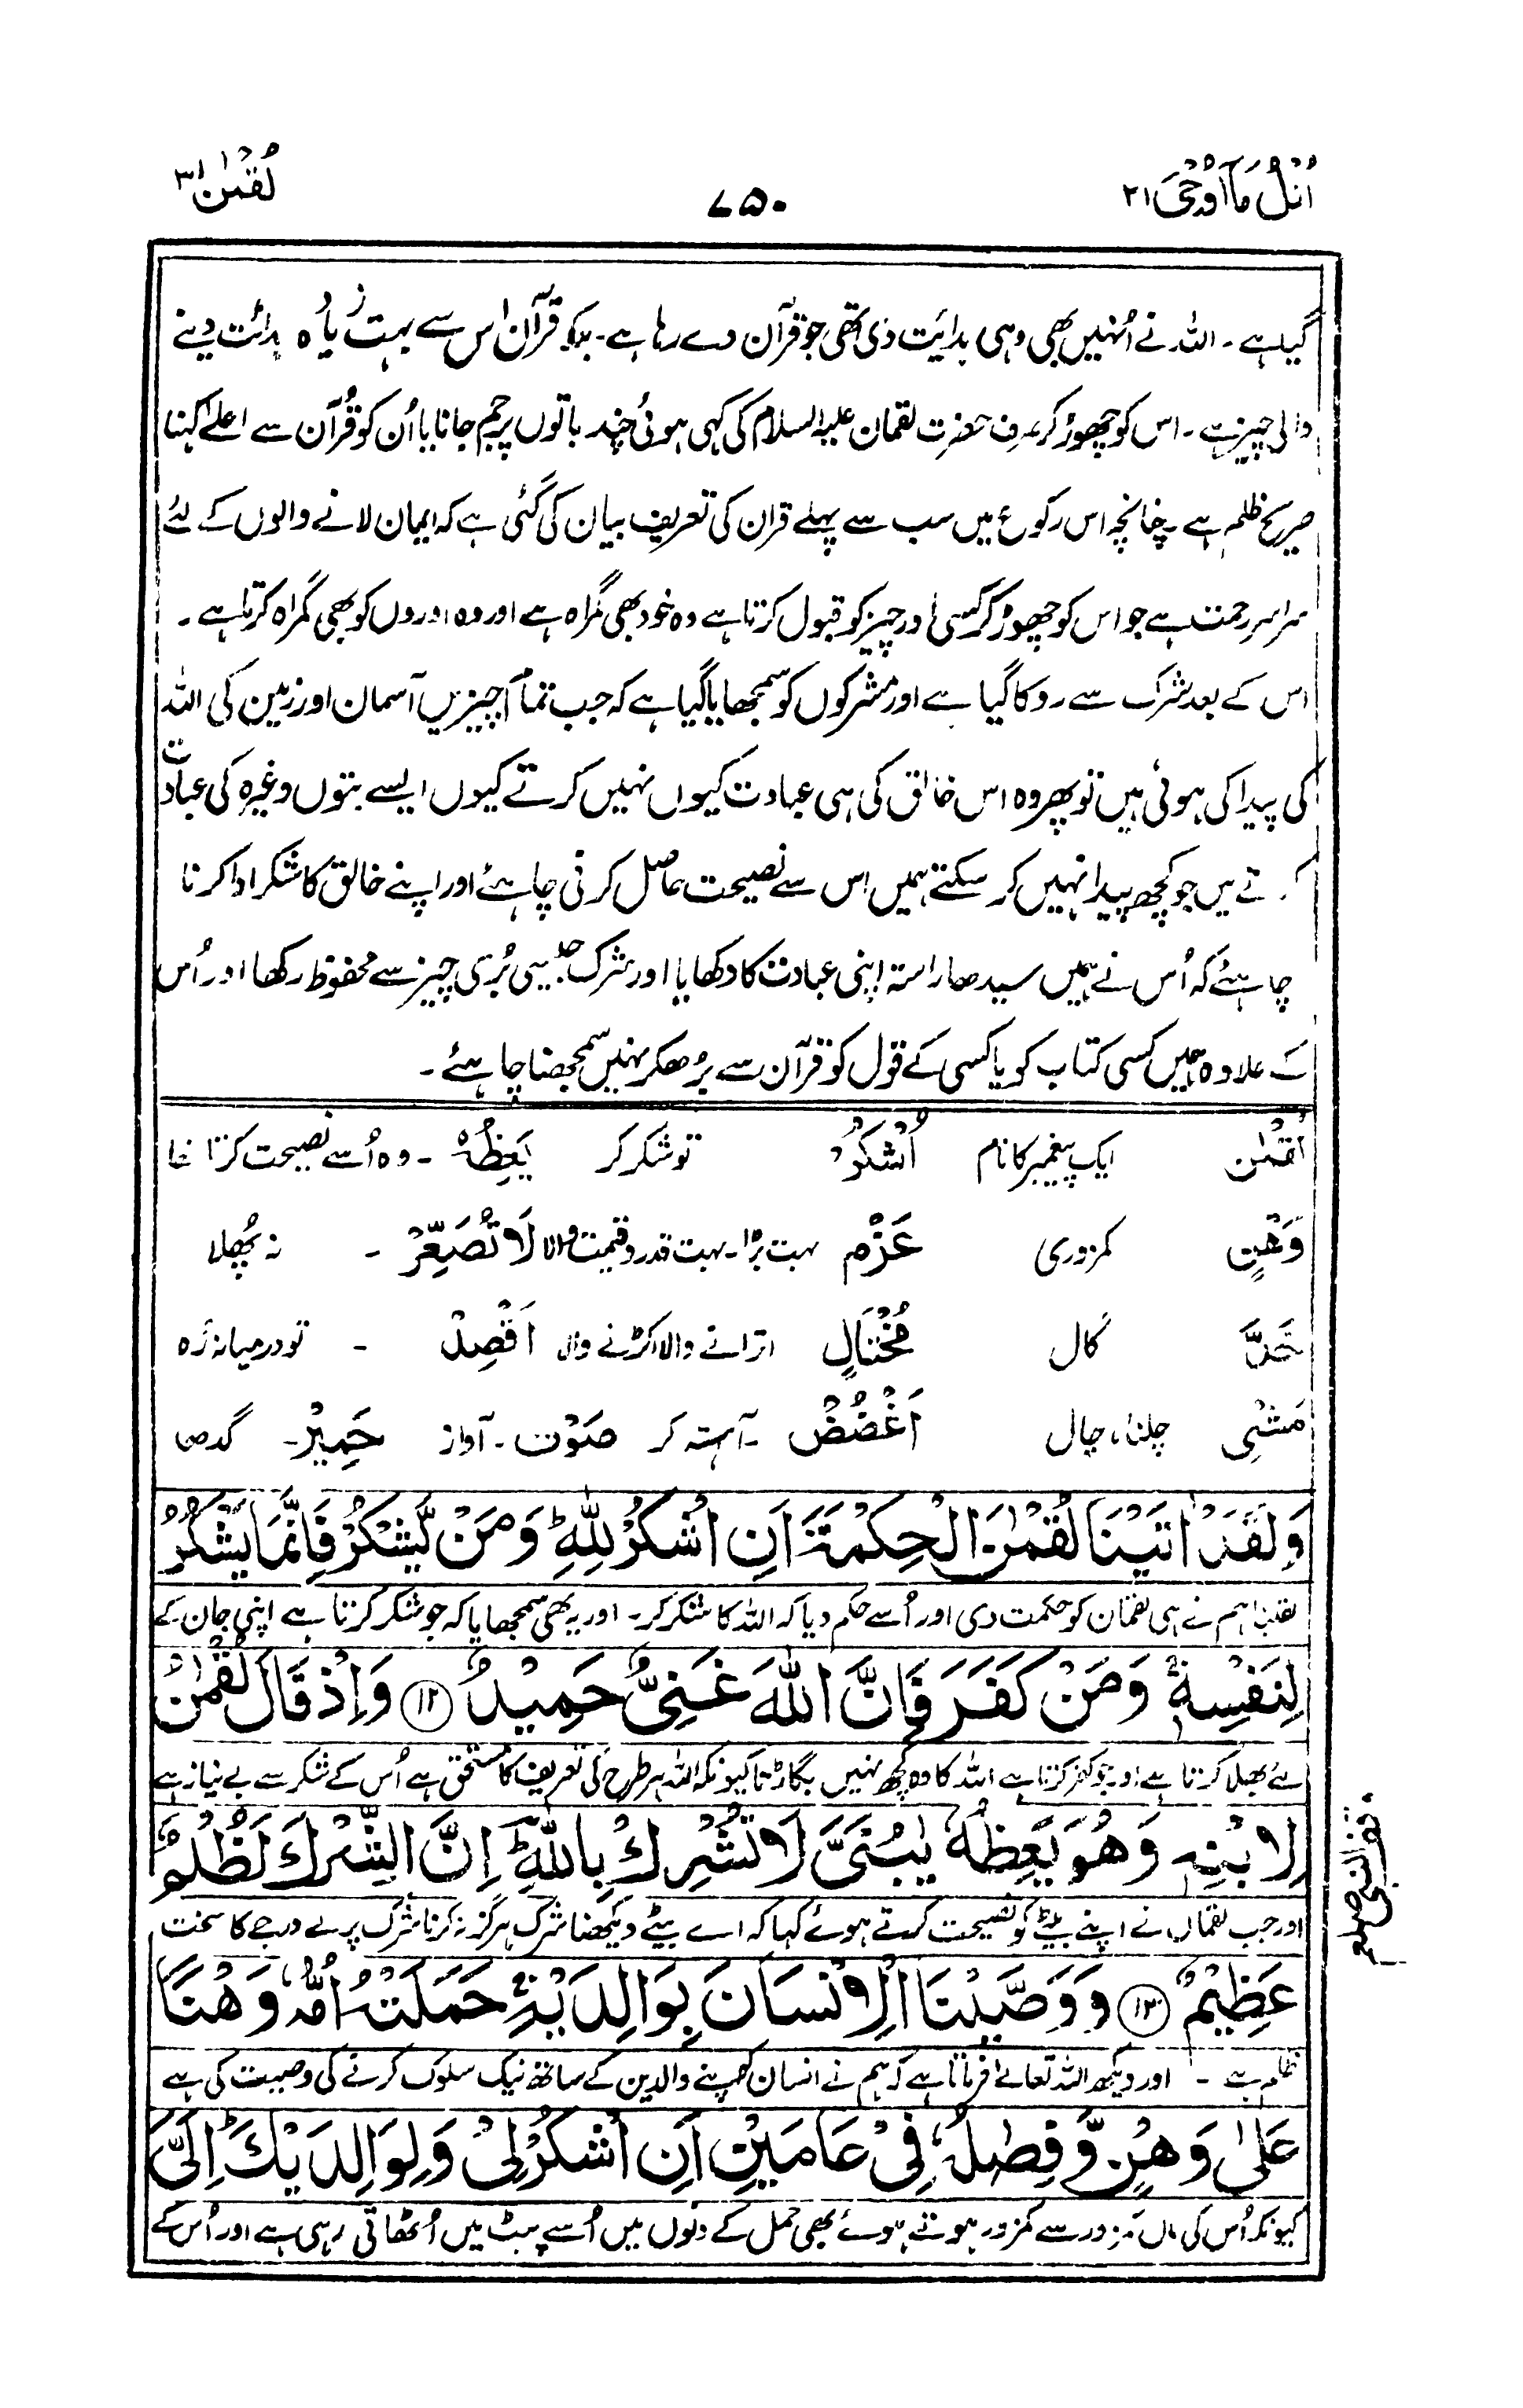 اُتْلُ مَآ اُوْحِیَ ۲۱
۷۵۰
لُقْمٰن ۳۱
گیا ہے۔ اللہ نے اُنہیں بھی وہی ہدایت دی تھی جو قرآن دے رہا ہے۔ بلکہ قرآن اس سے بہت زیادہ ہدائت دینے
والی چیز ہے۔ اس کو چھوڑ کر صرف حضرت لقمان علیہ السلام کی کہی ہوئی چند باتوں پر جم جانا یا اُن کو قُرآن سے اعلےٰ کہنا
صریح ظلم ہے۔ چنانچہ اس رکوع میں سب سے پہلے قران کی تعریف بیان کی گئی ہے کہ ایمان لانے والوں کے لئے
سراسر رحمت ہے جو اس کو چھوڑ کر کسی اور چیز کو قبول کرتا ہے وہ خود بھی گمراہ ہے اور وہ اوروں کو بھی گمراہ کرتا ہے۔
اس کے بعد شرک سے روکا گیا ہے اور مشرکوں کو سمجھایا گیا ہے کہ جب تمام چیزیں آسمان اور زمین کی اللہ
کی پیدا کی ہوئی ہیں تو پھر وہ اس خالق کی ہی عبادت کیوں نہیں کرتے کیوں ایسے بتوں وغیرہ کی عبادت
کرتے ہیں جو کچھ پیدا نہیں کر سکتے ہمیں اس سے نصیحت حاصل کرنی چاہئے اور اپنے خالق کا شکر ادا کرنا
چاہئے کہ اُس نے ہمیں سیدھا راستہ اپنی عبادت کا دکھایا اور شرک جیسی بُری چیز سے محفوظ رکھا اور اُس
کے علاوہ ہمیں کسی کتاب کو یا کسی کے قول کو قرآن سے بڑھکر نہیں سمجھنا چاہئے۔
لُقْمٰن ایک پیغمبر کا نام اُشْكُرْ تو شکر کر یَعِظُهٗ ۔ وہ اُسے نصیحت کرتا تھا
وَهْنٍ کمزوری عَزْم بہت بڑا۔ بہت قدر و قیمت والا لَا تُصَعِّرْ ۔ نہ پُھلا
خَدَّ گال مُخْتَالٍ اترانے والا اکڑنے والا اَقْصِدْ ۔ تو درمیانہ رَہ
مَشْیِ چلنا، چال اَغْضُضْ ۔ آہستہ کر صَوْت ۔ آواز حَمِیْرِ ۔ گدھا
وَلَقَدْ اٰتَیْنَا لُقْمٰنَ الْحِكْمَةَ اَنِ اشْكُرْ لِلّٰهِؕ وَمَنْ یَّشْكُرْ فَاِنَّمَا یَشْكُرُ
یقینا ہم نے ہی لقمان کو حکمت دی اور اُسے حکم دیا کہ اللہ کا شکر کر۔ اور یہ بھی سمجھایا کہ جو شکر کرتا ہے اپنی جان کے
لِنَفْسِهٖۚ وَمَنْ كَفَرَ فَاِنَّ اللّٰهَ غَنِیٌّ حَمِیْدٌ ﴿۱۲﴾ وَاِذْ قَالَ لُقْمٰنُ
لئے بھلا کرتا ہے اور جو کفر کرتا ہے اللہ کا وہ کچھ نہیں بگاڑتا کیونکہ اللہ ہر طرح کی تعریف کا مستحق ہے اُس کے شکر سے بے نیاز ہے
لِابْنِهٖ وَهُوَ یَعِظُهٗ یٰبُنَیَّ لَا تُشْرِكْ بِاللّٰهِؕ اِنَّ الشِّرْكَ لَظُلْمٌ
اور جب لقمان نے اپنے بیٹے کو نصیحت کرتے ہوئے کہا کہ اے بیٹے دیکھنا شرک ہرگز نہ کرنا شرک پرلے درجے کا سخت
عَظِیْمٌ ﴿۱۳﴾ وَوَصَّیْنَا الْاِنْسَانَ بِوَالِدَیْهِۚ حَمَلَتْهُ اُمُّهٗ وَهْنًا
ظلم ہے ۔ اور دیکھ اللہ تعالےٰ فرماتا ہے کہ ہم نے انسان کو اپنے والدین کے ساتھ نیک سلوک کرنے کی وصیت کی ہے
عَلٰی وَهْنٍ وَّفِصٰلُهٗ فِیْ عَامَیْنِ اَنِ اشْكُرْ لِیْ وَلِوَالِدَیْكَؕ اِلَیَّ
کیونکہ اُس کی ماں کمزور سے کمزور ہوتے ہوئے بھی حمل کے دنوں میں اُسے پیٹ میں اُٹھاتی رہی ہے اور اُس کے
وقف النبی صلعم